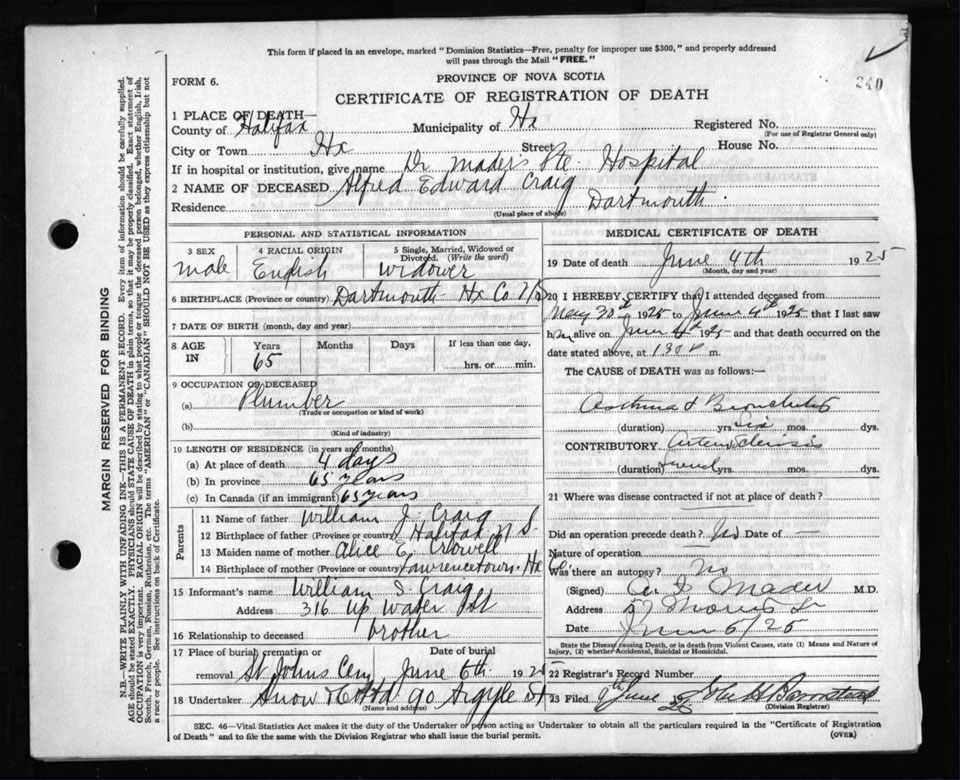 This form if placed in an envelope, marked "Dominion Statistics—Free, penalty for improper use $300," and properly addressed
will pass through the Mail "FREE."
240
FORM 6.
PROVINCE OF NOVA SCOTIA
CERTIFICATE OF REGISTRATION OF DEATH
1 PLACE OF DEATH—
County of Halifax Municipality of Hx Registered No.
(For use of Registrar General only)
City or Town Hx Street House No.
If in hospital or institution, give name Dr Mader's Pte. Hospital
2 NAME OF DECEASED Alfred Edward Craig
Residence Dartmouth.
(Usual place of abode)
PERSONAL AND STATISTICAL INFORMATION
3 SEX male
4 RACIAL ORIGIN English
5 Single, Married, Widowed or
Divorced. (Write the word)
widower
6 BIRTHPLACE (Province or country) Dartmouth Hx Co. N.S.
7 DATE OF BIRTH (month, day and year)
8 AGE IN Years Months Days If less than one day,
65 hrs. or min.
9 OCCUPATION OF DECEASED
(a) Plumber
(Trade or occupation or kind of work)
(b)
(Kind of industry)
10 LENGTH OF RESIDENCE (in years and months)
(a) At place of death 4 days
(b) In province 65 years
(c) In Canada (if an immigrant) 65 years
Parents
11 Name of father William J. Craig
12 Birthplace of father (Province or country) Halifax N.S.
13 Maiden name of mother Alice E. Crowell
14 Birthplace of mother (Province or country) Lawrencetown. Hx Co.
15 Informant's name William S. Craig
Address 316 Up Water St
16 Relationship to deceased brother
17 Place of burial, cremation or Date of burial
removal St Johns Cem June 6th 1925
18 Undertaker Snow & Co Ltd 90 Argyle St
(Name and address)
MEDICAL CERTIFICATE OF DEATH
19 Date of death June 4th 1925
(Month, day and year)
20 I HEREBY CERTIFY that I attended deceased from
May 30th 1925 to June 4th 1925 that I last saw
him alive on June 4th 1925 and that death occurred on the
date stated above, at 1.30 P m.
The CAUSE OF DEATH was as follows:—
Asthma & Bronchitis
(duration) yrs. six mos. dys.
CONTRIBUTORY Arterio sclerosis
(duration) yrs. mos. dys.
21 Where was disease contracted if not at place of death?
Did an operation precede death? No Date of —
Nature of operation
Was there an autopsy? No
(Signed) Mader M.D.
Address 57 Morris St
Date June 5/25
State the Disease causing Death, or in death from Violent Causes, state (1) Means and Nature of
Injury, (2) whether Accidental, Suicidal or Homicidal.
22 Registrar's Record Number
23 Filed 9th June 25 John H Barnstead
(Division Registrar)
SEC. 46—Vital Statistics Act makes it the duty of the Undertaker or person acting as Undertaker to obtain all the particulars required in the "Certificate of Registration
of Death" and to file the same with the Division Registrar who shall issue the burial permit.
(OVER)
MARGIN RESERVED FOR BINDING
N.B.—WRITE PLAINLY WITH UNFADING INK—THIS IS A PERMANENT RECORD. Every item of information should be carefully supplied.
AGE should be stated EXACTLY. PHYSICIANS should STATE CAUSE OF DEATH in plain terms, so that it may be properly classified. Exact statement of
OCCUPATION is very important. RACIAL ORIGIN will be described by stating to what people or tongue the deceased person belonged, whether English, Irish,
Scotch, French, German, Russian, Ruthenian, etc. The terms "AMERICAN" or "CANADIAN" SHOULD NOT BE USED as they express citizenship but not
a race or people. See instructions on back of Certificate.